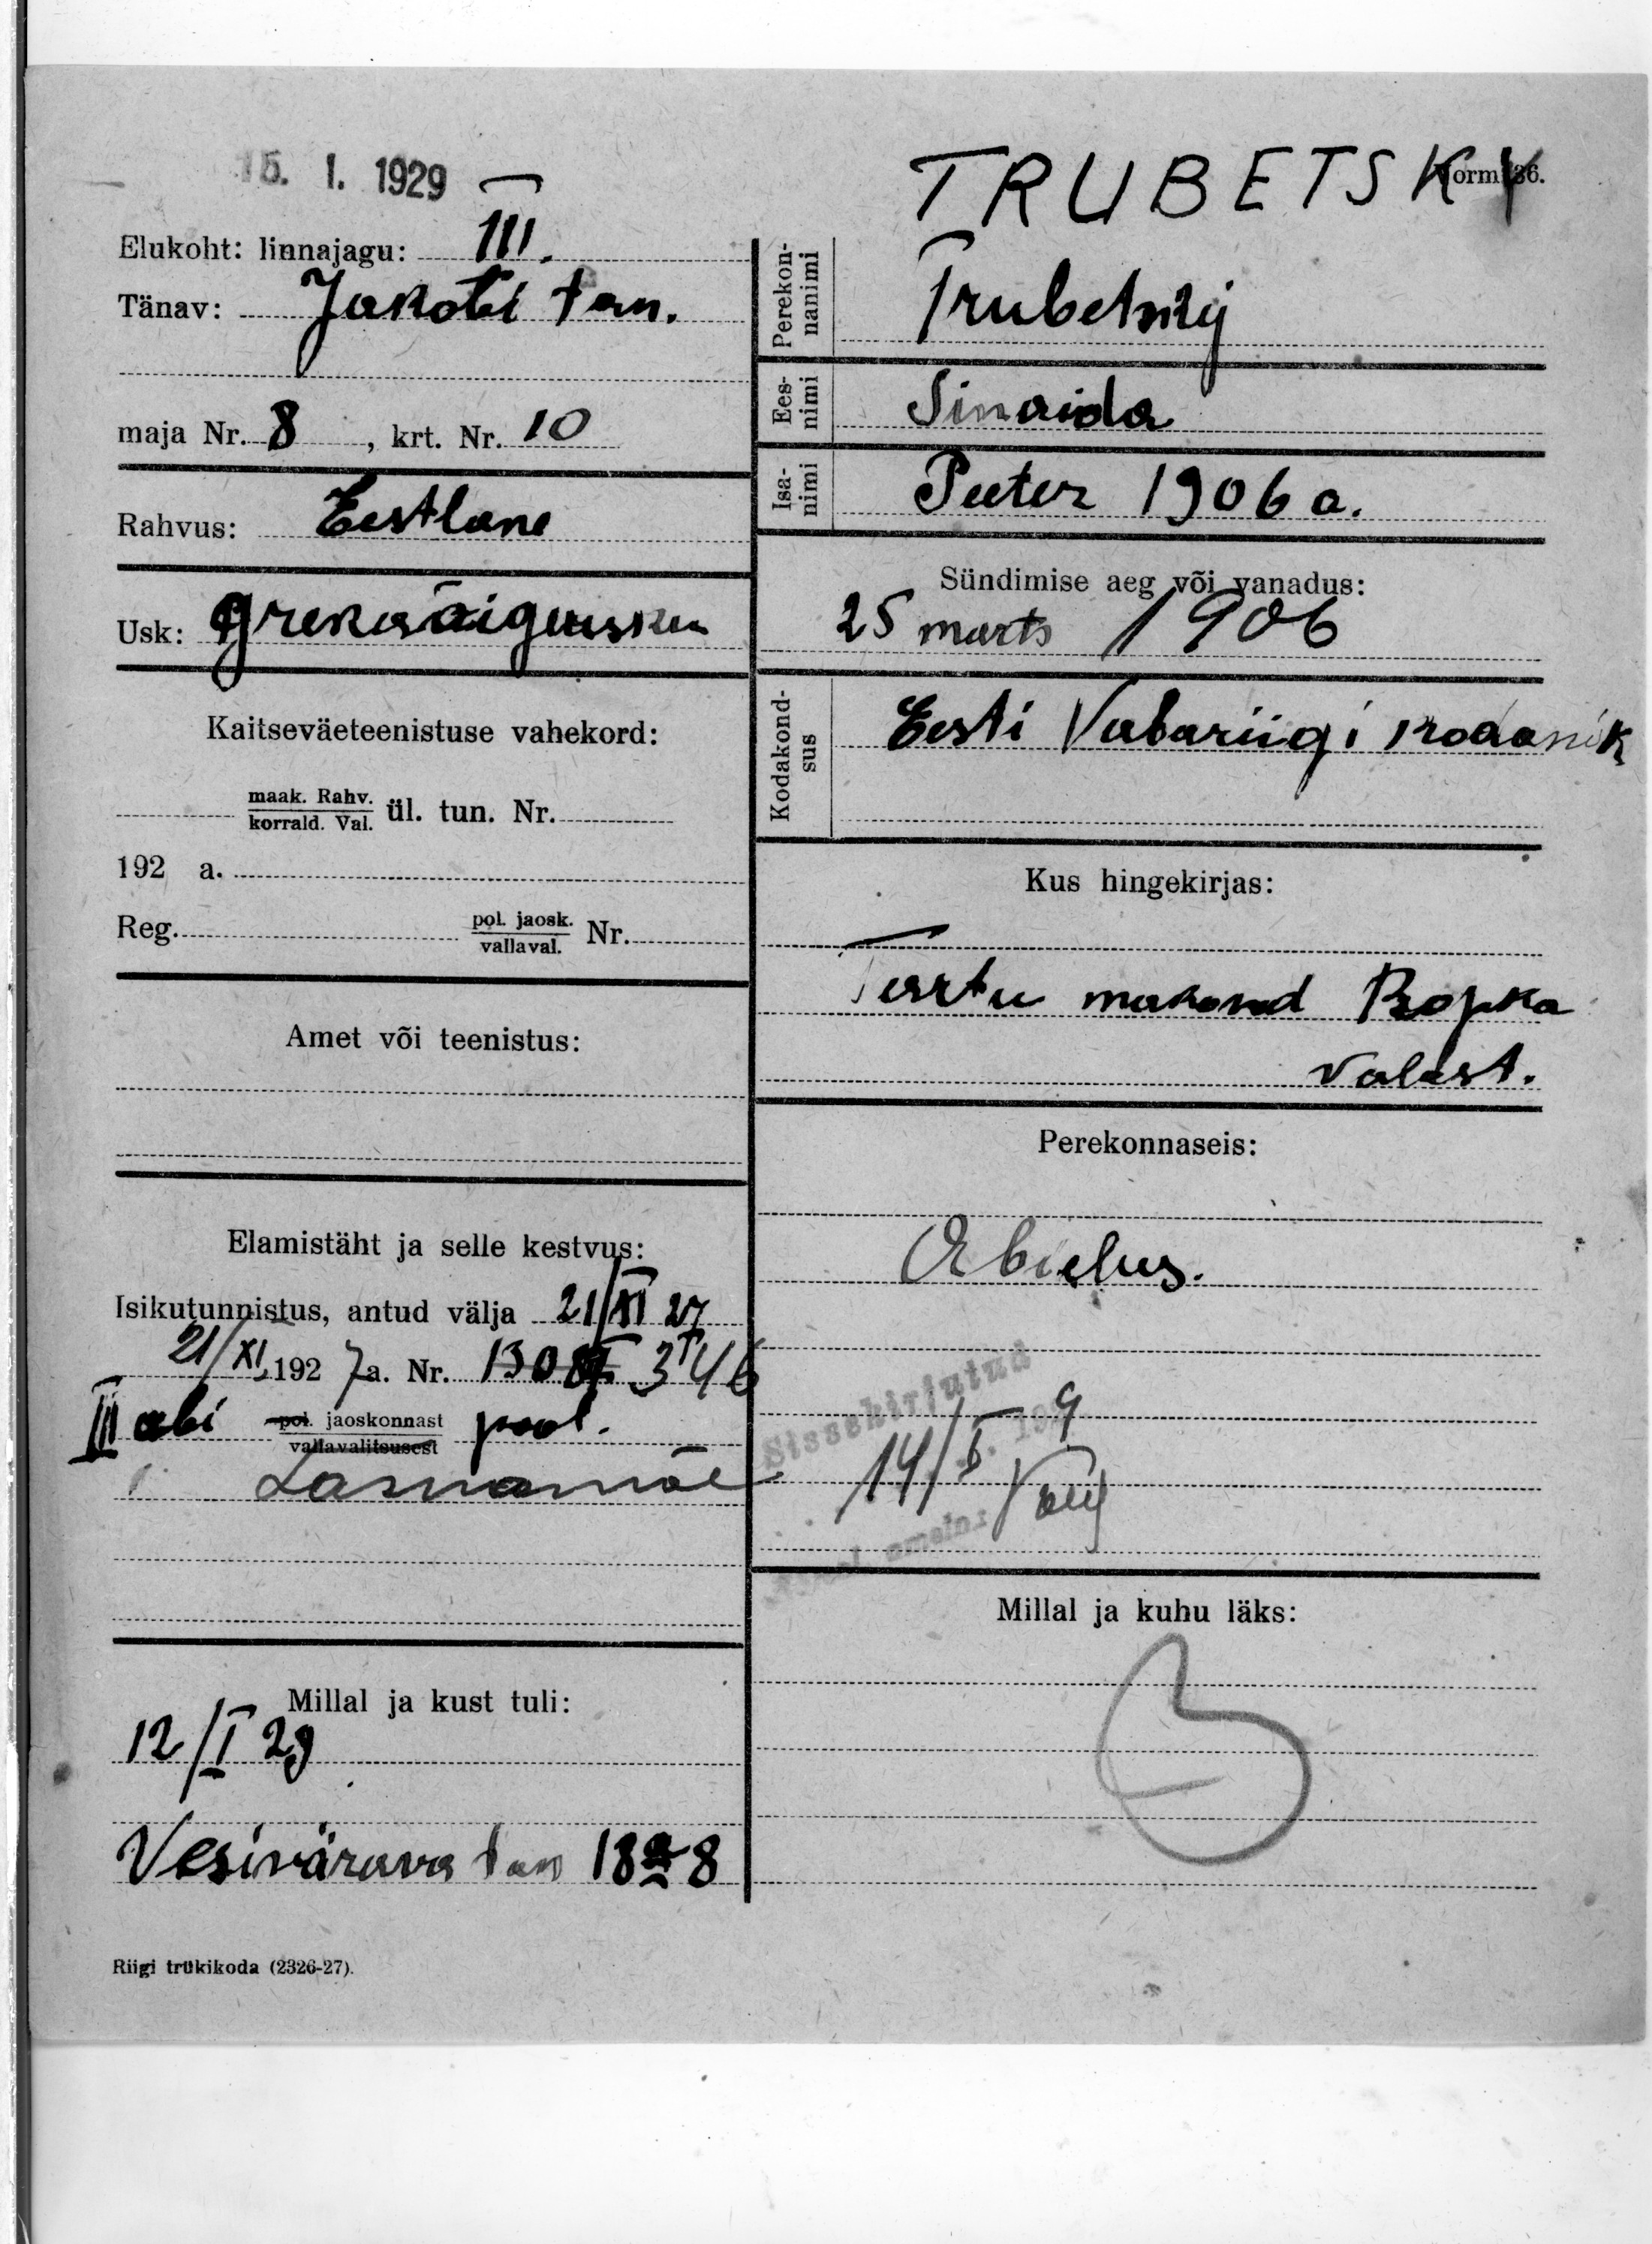 15. I. 1929
TRUBETSKY
Vorm 36.
Elukoht: linnajagu: III.
Tänav: Jakobi tän.
maja Nr. 8 , krt. Nr. 10
Rahvus: Eestlane
Usk: Grekoõigeusku
Kaitseväeteenistuse vahekord:
maak. Rahv. korrald. Val. ül. tun. Nr.
192 a.
Reg. pol. jaosk. vallaval. Nr.
Amet või teenistus:
Elamistäht ja selle kestvus:
Isikutunnistus, antud välja 21/XI 27
21/XI 1927 a. Nr.
III abi pol. jaoskonnast vallavalitsusest pool.
Lasnamäe
Millal ja kust tuli:
12/I 29
Vesivärava tän 18 8
Riigi trükikoda (2326-27).
Perekonnanimi Trubetskij
Eesnimi Sinaida
Isanimi Peeter 1906 a.
Sündimise aeg või vanadus:
25 marts 1906
Kodakondsus Eesti Vabariigi kodanik
Kus hingekirjas:
Tartu makond Ropka
valast.
Perekonnaseis:
Abielus.
Sissekirjutud
14/I 9
Millal ja kuhu läks: